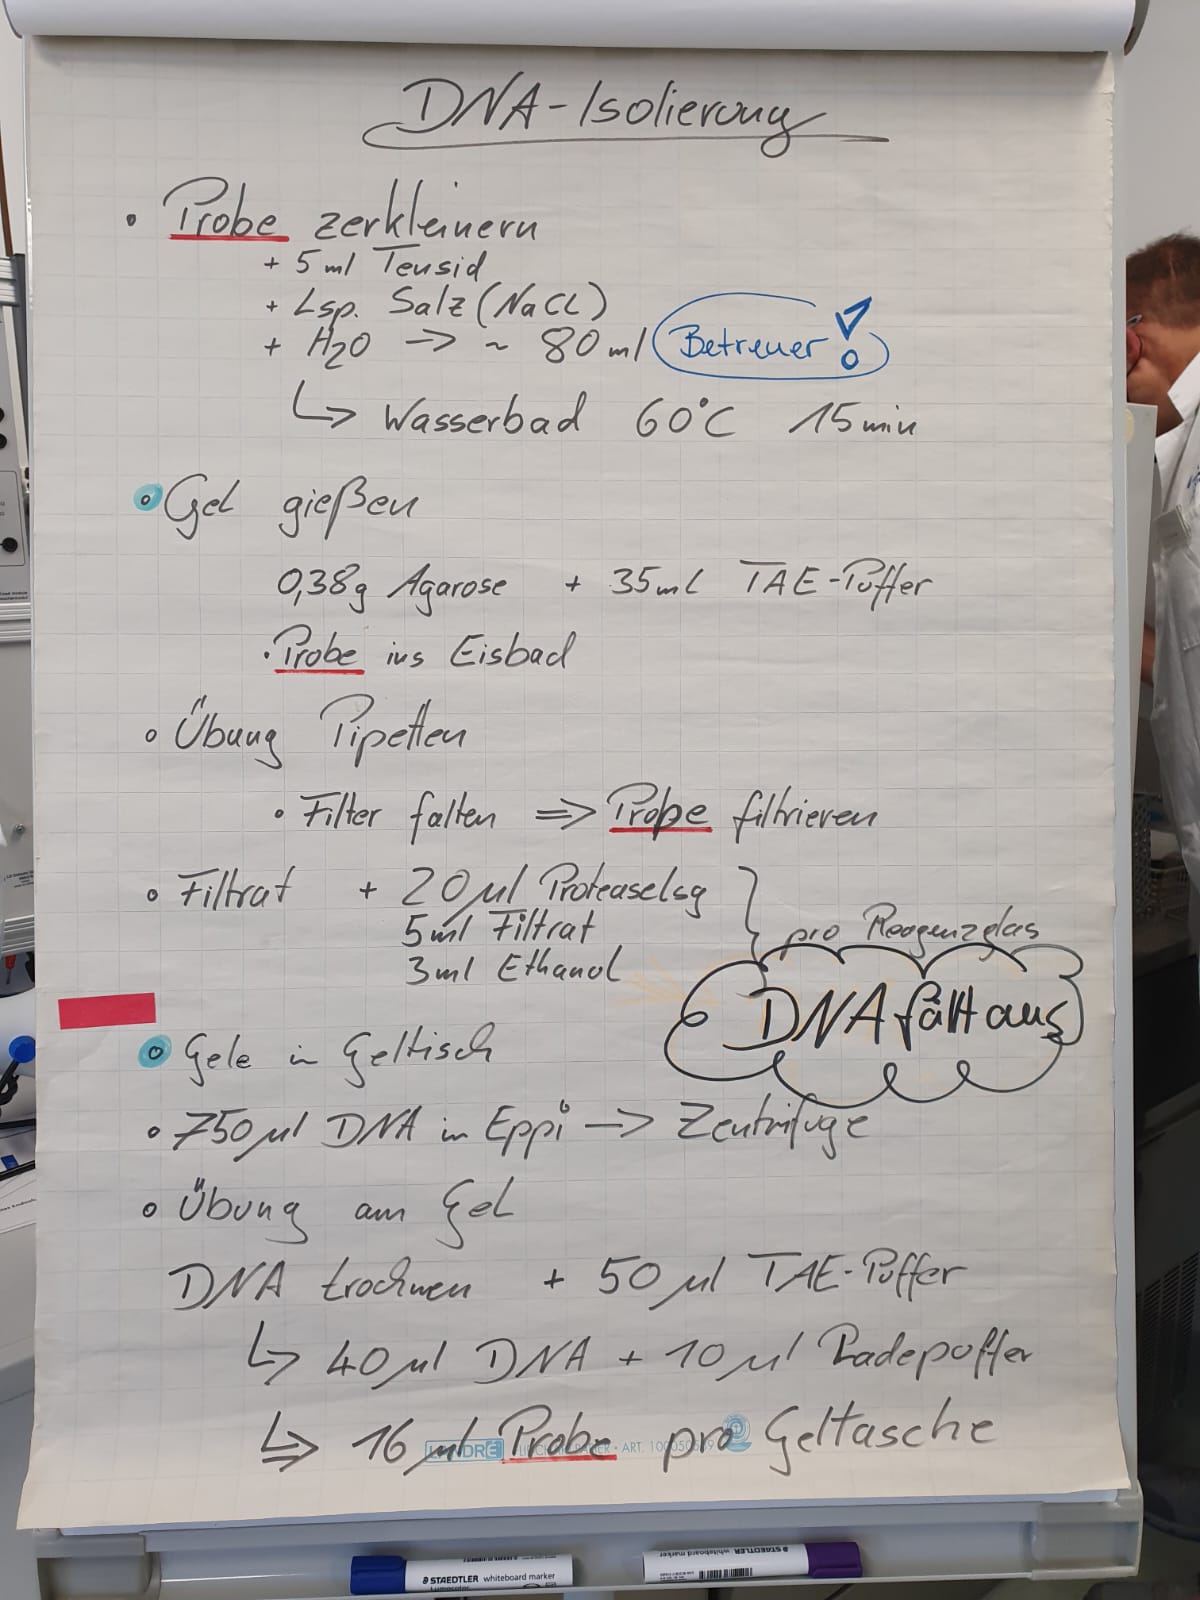 DNA-Isolierung
• Probe zerkleinern
+ 5 ml Tensid
+ Lsp. Salz (NaCl)
+ H2O → ~ 80 ml Betreuer!
↳ Wasserbad 60°C 15 min
• Gel gießen
0,38g Agarose + 35 ml TAE-Puffer
• Probe ins Eisbad
• Übung Pipetten
• Filter falten ⇒ Probe filtrieren
• Filtrat + 20 µl Proteaselsg
5 ml Filtrat
3 ml Ethanol
} pro Reagenzglas
DNA fällt aus
• Gele in Geltisch
• 750 µl DNA in Eppi → Zentrifuge
• Übung am Gel
DNA trocknen + 50 µl TAE-Puffer
↳ 40 µl DNA + 10 µl Ladepuffer
↳ 16 µl Probe pro Geltasche
STAEDTLER whiteboard marker
STAEDTLER whiteboard marker